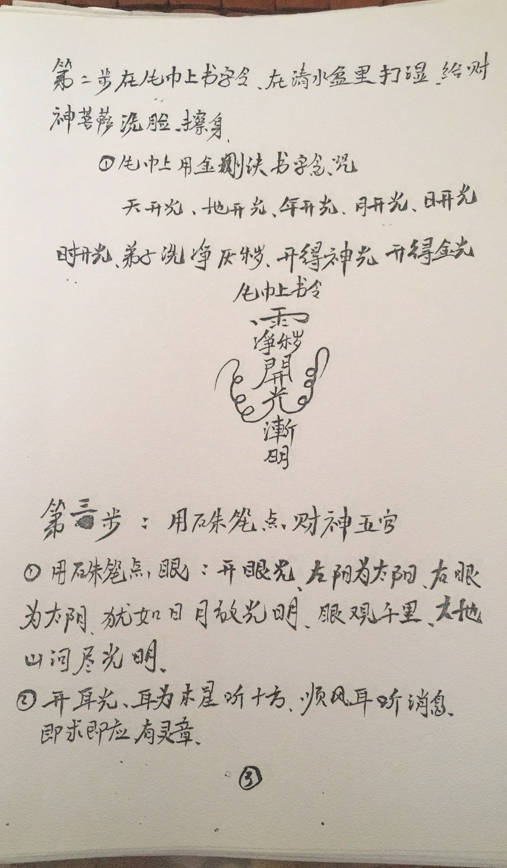 第二步在毛巾上书字令、在清水盆里打湿、给财
神菩萨洗脸、擦身
①毛巾上用金刚诀书字令、咒
天开光、地开光、年开光、月开光、日开光
时开光、弟子洗净灰秽、开得神光 开得金光
毛巾上书令
雨
净秽
開
光
漸
明
第三步：用硃笔点、财神五官
①用硃笔点、眼：开眼光、左阳为太阳、右眼
为太阴、犹如日月放光明、眼观千里、大地
山河尽光明、
②开耳光、耳为木星听十方、顺风耳听消息、
即求即应、有灵章、
③